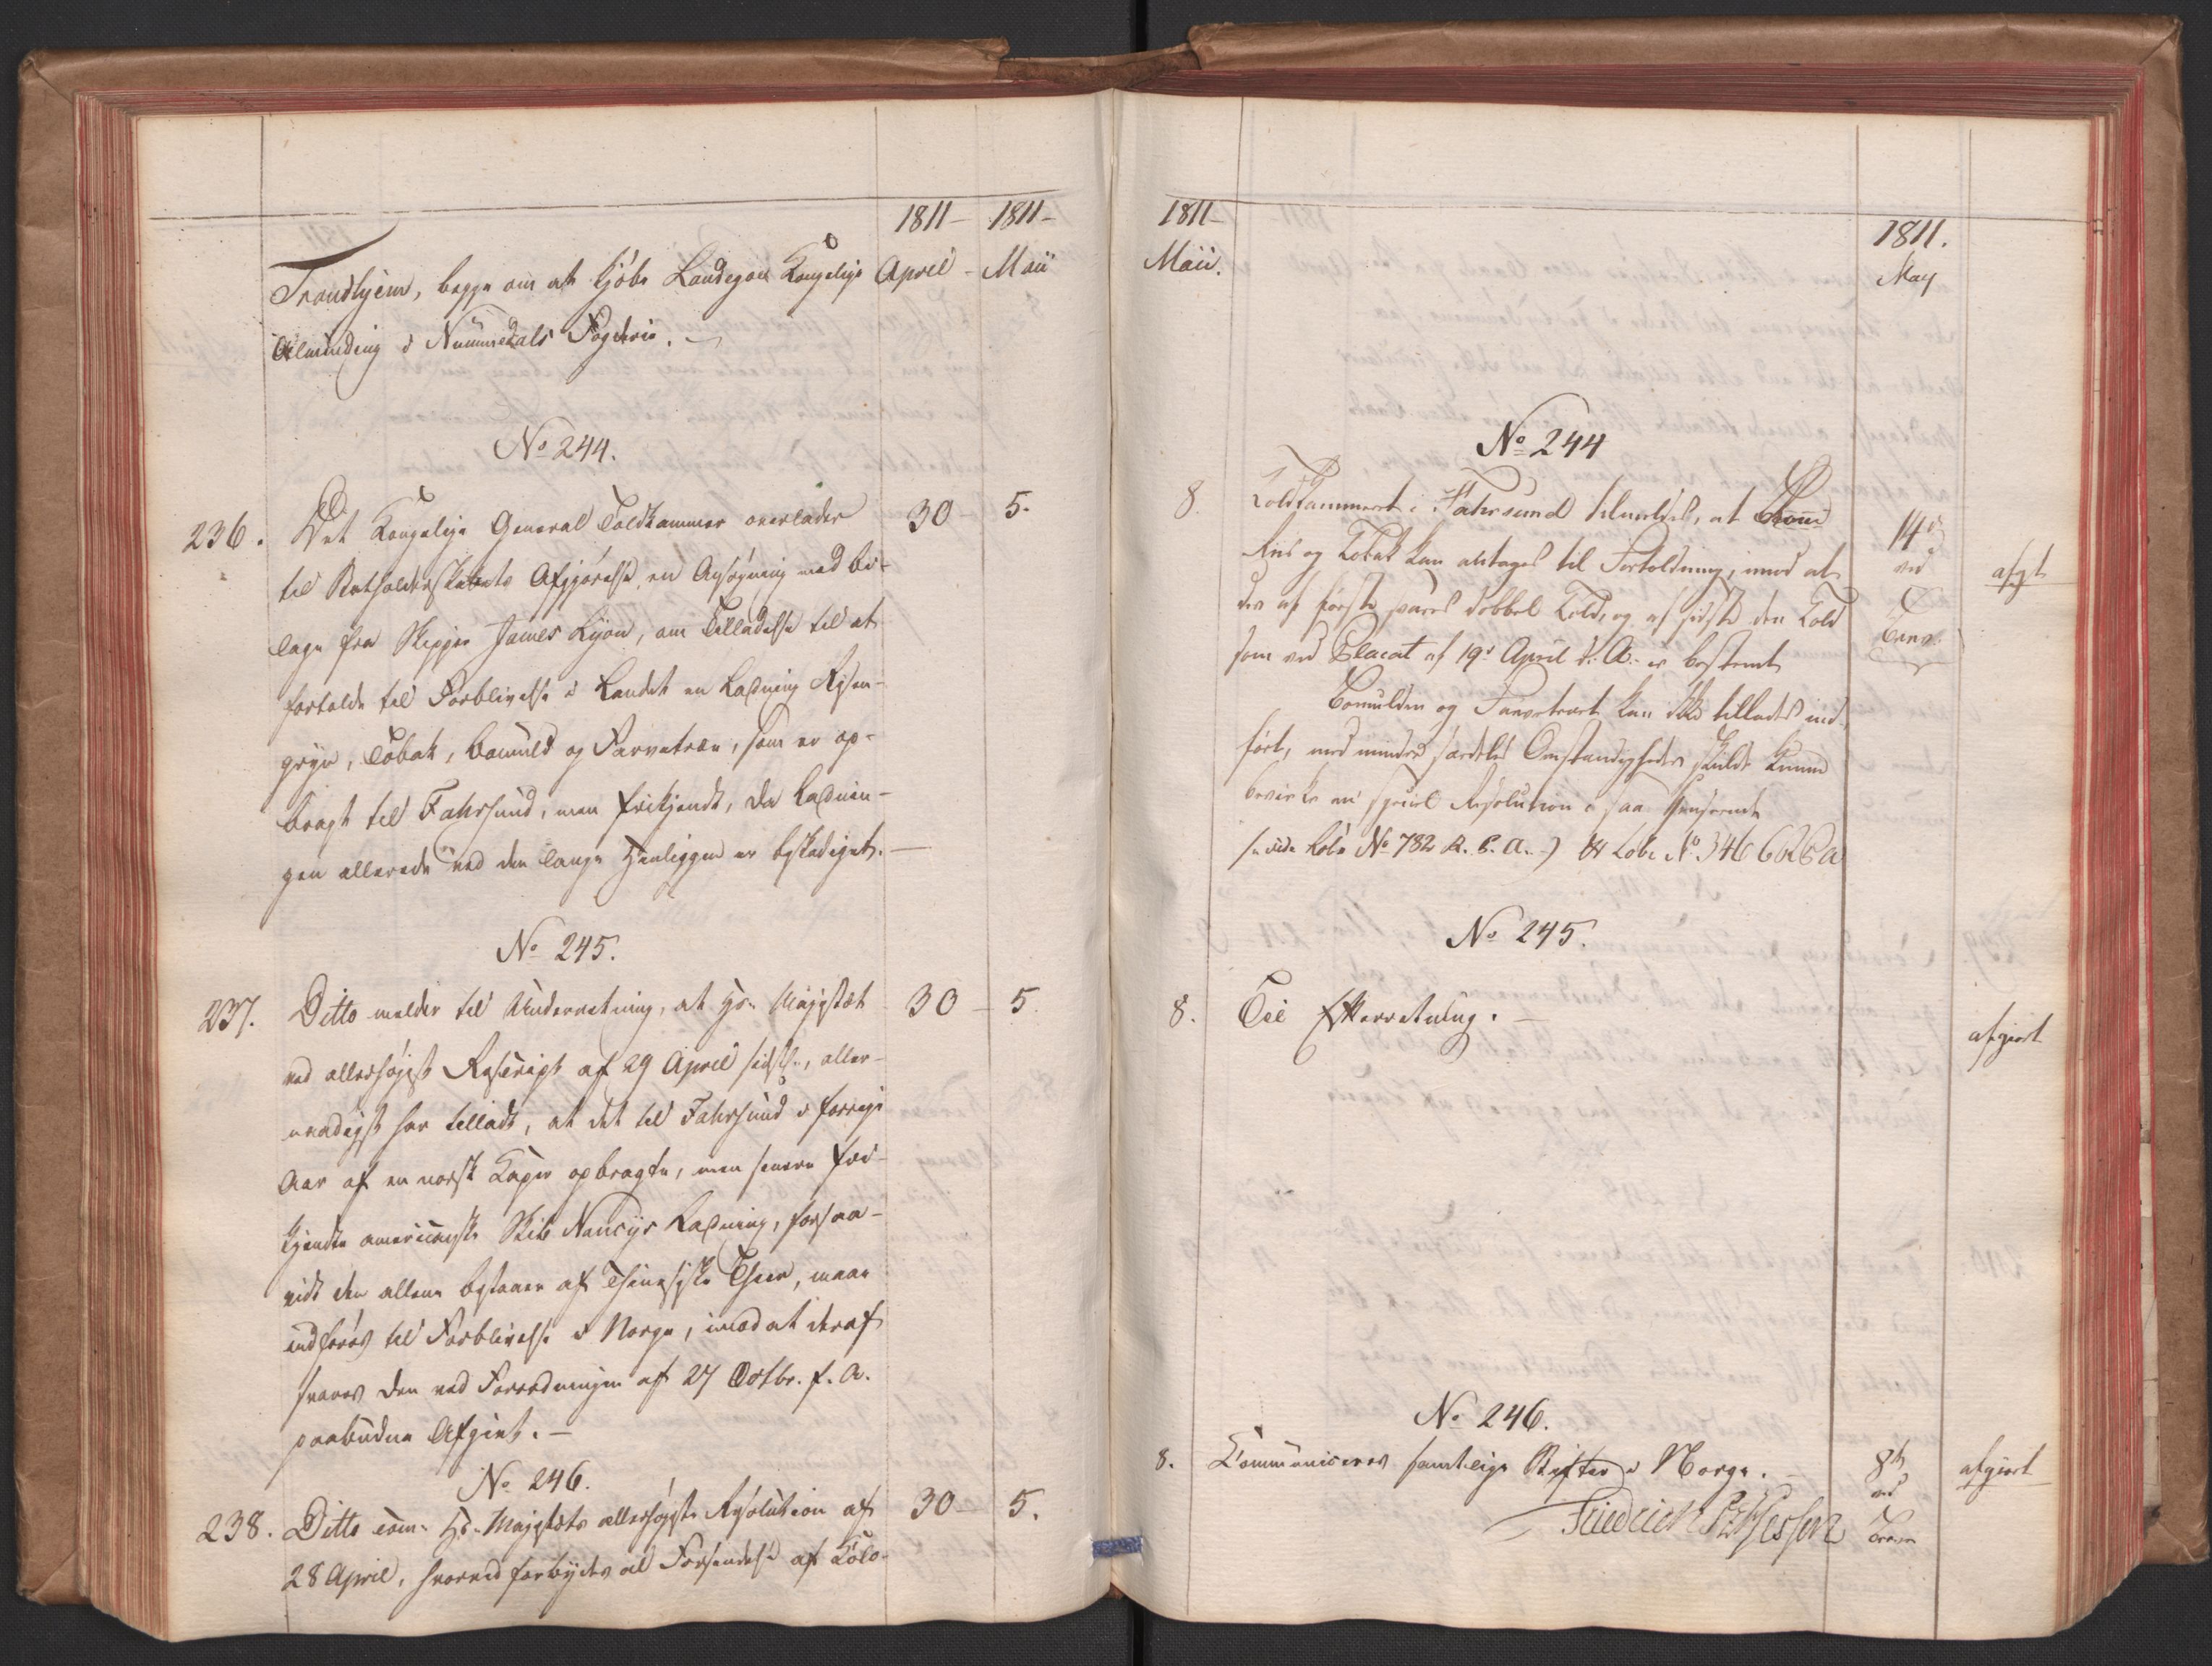 1811- 1811-
Trondhjem, begge om at kjøbe Landegods Kongelige April - Maii
Alminding i Nummedals Fogderie.
No 244.
236. Det Kongelige General Toldkammer overlader 30 5.
til Statholderskabets Afgjørelse en Ansøgning med Bi-
lage fra Skipper James Lyon, om Tilladelse til at
fortolde til Forblivelse i Landet en Ladning Risen-
gryn, Tobak, Bomuld og Farvetræe, som er op-
bragt til Fahrsund, men frikjendt, da Ladnin-
gen allerede ved den lange Henliggen er beskadiget. —
No 245.
237. Ditto melder til Underretning, at Hs. Majestæt 30 - 5.
ved allerhøjest Rescript af 29 April sidstl., aller-
naadigst har tilladt, at det til Fahrsund i forrige
Aar af en norsk Caper opbragte, men senere fri-
kjendte americanske Skib Nancys Ladning, forsaa-
vidt den allene bestaaer af Chinesiske Theer, maae
indføres til Forblivelse i Norge, imod at deraf
svares den ved Forordningen af 27 Octbr. f. A.
paabudne Afgivt. —
No 246.
238. Ditto com. Hs. Majestæts allerhøjeste Resolution af 30 - 5.
28 April, hvorved forbydes al Forsendelse af Colo-
1811- 1811.
Maii. May
No 244
8. Toldkammeret i Fahrsund tilmeldes, at
Riis og Tobak kan antages til Fortoldning, imod at 14d
der af første svares dobbel Told, og af sidste den Told ved afgt
som ved Placat af 19de April d. A. er bestemt
Bomulden og Farvetræet kan ikke tillades ind-
ført, med mindre særdeles Omstændigheder skulde kunne
bevirke en speciel Resolution i saa Henseende
No 782 R. C. A. No 346
No 245.
8. Til Efterretning. — afgiort
No 246.
8. Communiceres samtlige Stifter i Norge. — 8de afgiort
Friedrich Pz Hessen ved